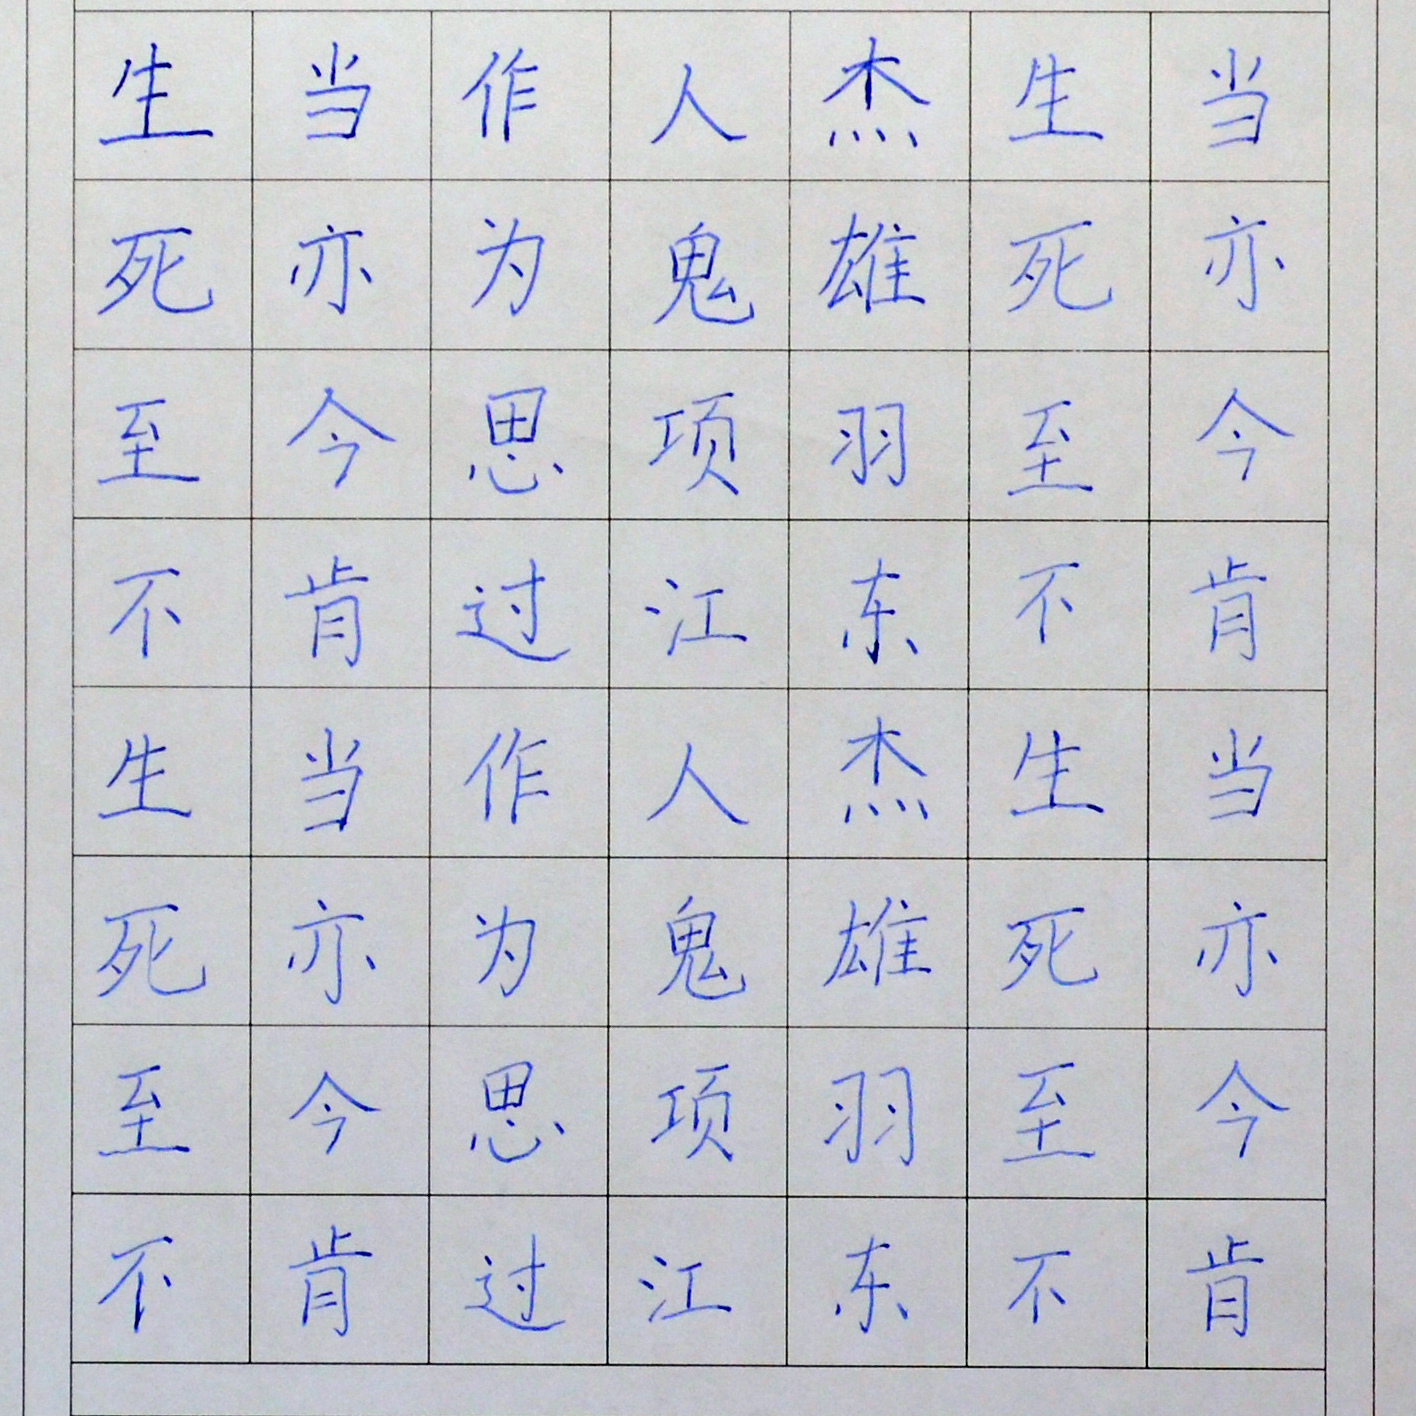 生当作人杰生当
死亦为鬼雄死亦
至今思项羽至今
不肯过江东不肯
生当作人杰生当
死亦为鬼雄死亦
至今思项羽至今
不肯过江东不肯